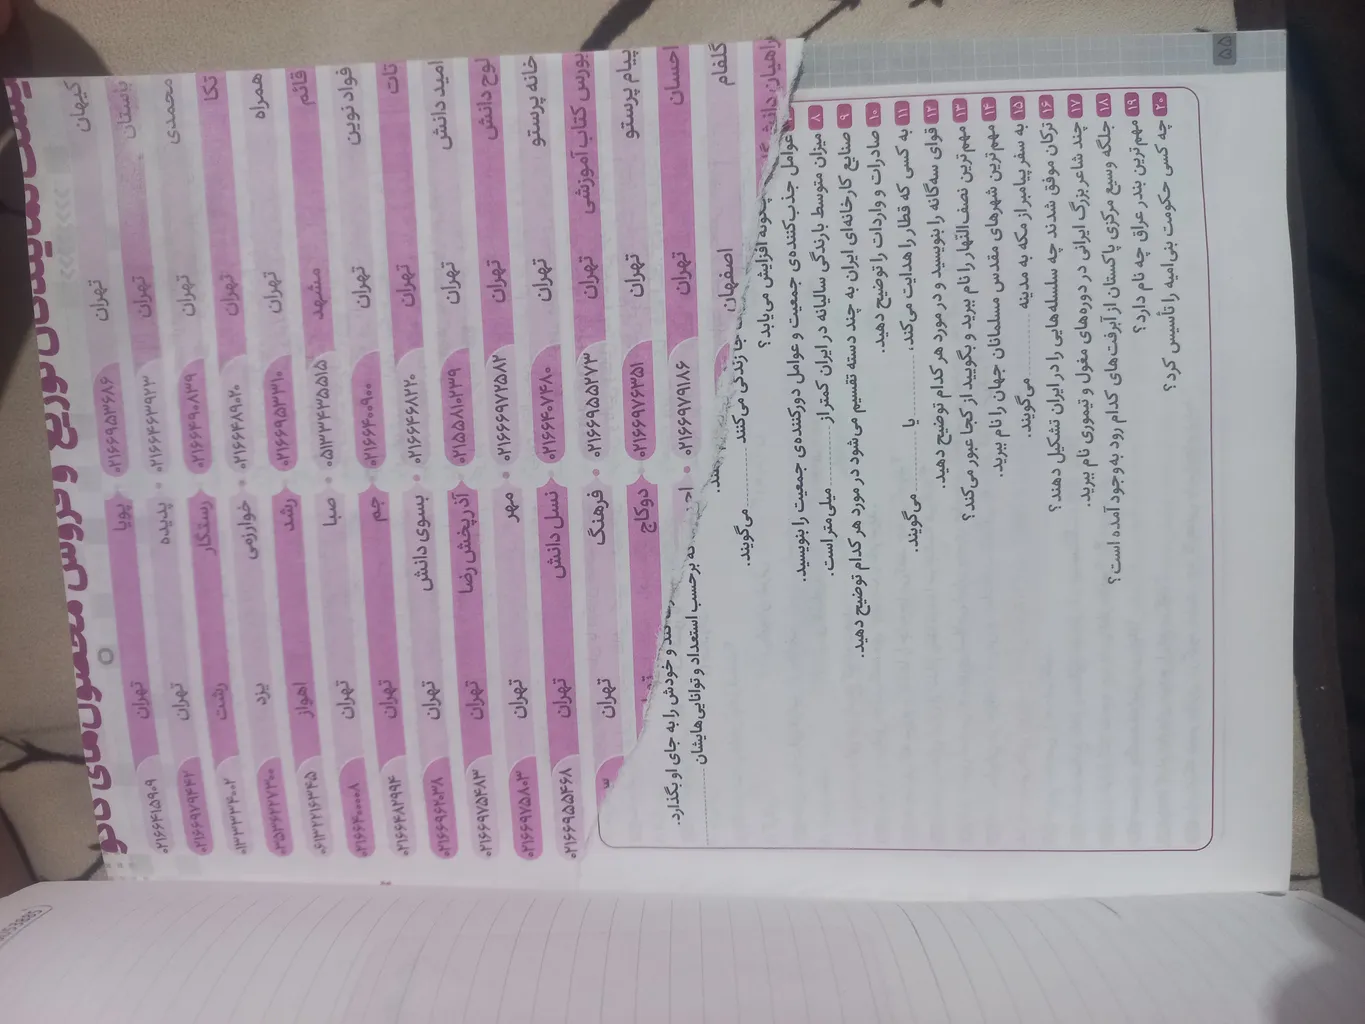 کیهان تهران ۰۲۱۶۶۹۵۳۶۸۶ پویا تهران ۰۲۱۶۶۴۱۵۹۰۹
باستان تهران ۰۲۱۶۶۴۶۳۹۲۳ پدیده تهران ۰۲۱۶۶۹۷۹۴۴۲
محمدی تهران ۰۲۱۶۶۴۹۰۸۳۹ رستگار رشت ۰۱۳۳۳۳۴۰۰۲
تکا تهران ۰۲۱۶۶۴۸۹۰۲۰ خوارزمی یزد ۰۳۵۳۶۲۲۷۳۰۰
همراه تهران ۰۲۱۶۶۹۵۳۳۱۰ رشد اهواز ۰۶۱۳۲۲۱۶۳۴۵
قائم مشهد ۰۵۱۳۳۴۳۵۵۱۵ صبا تهران ۰۲۱۶۶۴۰۰۰۰۸
فواد نوین تهران ۰۲۱۶۶۴۰۰۹۰۰ جم تهران ۰۲۱۶۶۴۸۲۹۹۴
تات تهران ۰۲۱۶۶۴۶۸۲۲۰ بسوی دانش تهران ۰۲۱۶۶۹۶۲۰۳۸
امید دانش تهران ۰۲۱۵۵۸۱۰۲۳۹ آذرپخش رضا تهران ۰۲۱۶۶۹۷۵۴۸۳
لوح دانش تهران ۰۲۱۶۶۹۷۲۵۸۲ مهر تهران ۰۲۱۶۶۹۷۵۸۰۳
خانه پرستو تهران ۰۲۱۶۶۴۰۷۴۸۰ نسل دانش تهران ۰۲۱۶۶۹۵۵۴۶۸
بورس کتاب آموزشی تهران ۰۲۱۶۶۹۵۵۲۷۳ فرهنگ تهران
پیام پرستو تهران ۰۲۱۶۶۹۷۶۳۵۱ دوکاج
احسان تهران ۰۲۱۶۶۹۷۹۱۸۶
گلفام اصفهان
و خودش را به جای او بگذارد.
برحسب استعداد و توانایی‌هایشان
زندگی می‌کنند .......... می‌گویند.
افزایش می‌یابد؟
عوامل جذب‌کننده‌ی جمعیت و عوامل دورکننده‌ی جمعیت را بنویسید.
۸ میزان متوسط بارندگی سالیانه در ایران کمتر از .......... میلی‌متر است.
۹ صنایع کارخانه‌ای ایران به چند دسته تقسیم می‌شود در مورد هر کدام توضیح دهید.
۱۰ صادرات و واردات را توضیح دهید.
۱۱ به کسی که قطار را هدایت می‌کند، .......... یا .......... می‌گویند.
۱۲ قوای سه‌گانه را بنویسید و در مورد هر کدام توضیح دهید.
۱۳ مهم‌ترین نصف‌النهار را نام ببرید و بگویید از کجا عبور می‌کند؟
۱۴ مهم‌ترین شهرهای مقدس مسلمانان جهان را نام ببرید.
۱۵ به سفر پیامبر از مکه به مدینه .......... می‌گویند.
۱۶ ترکان موفق شدند چه سلسله‌هایی را در ایران تشکیل دهند؟
۱۷ چند شاعر بزرگ ایرانی در دوره‌های مغول و تیموری نام ببرید.
۱۸ جلگه وسیع مرکزی پاکستان از آبرفت‌های کدام رود به‌وجود آمده است؟
۱۹ مهم‌ترین بندر عراق چه نام دارد؟
۲۰ چه کسی حکومت بنی‌امیه را تأسیس کرد؟
۵۵